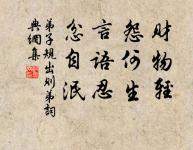 財物輕
怨何生
言語忍
忿自泯
弟子規出則弟詞
典網集